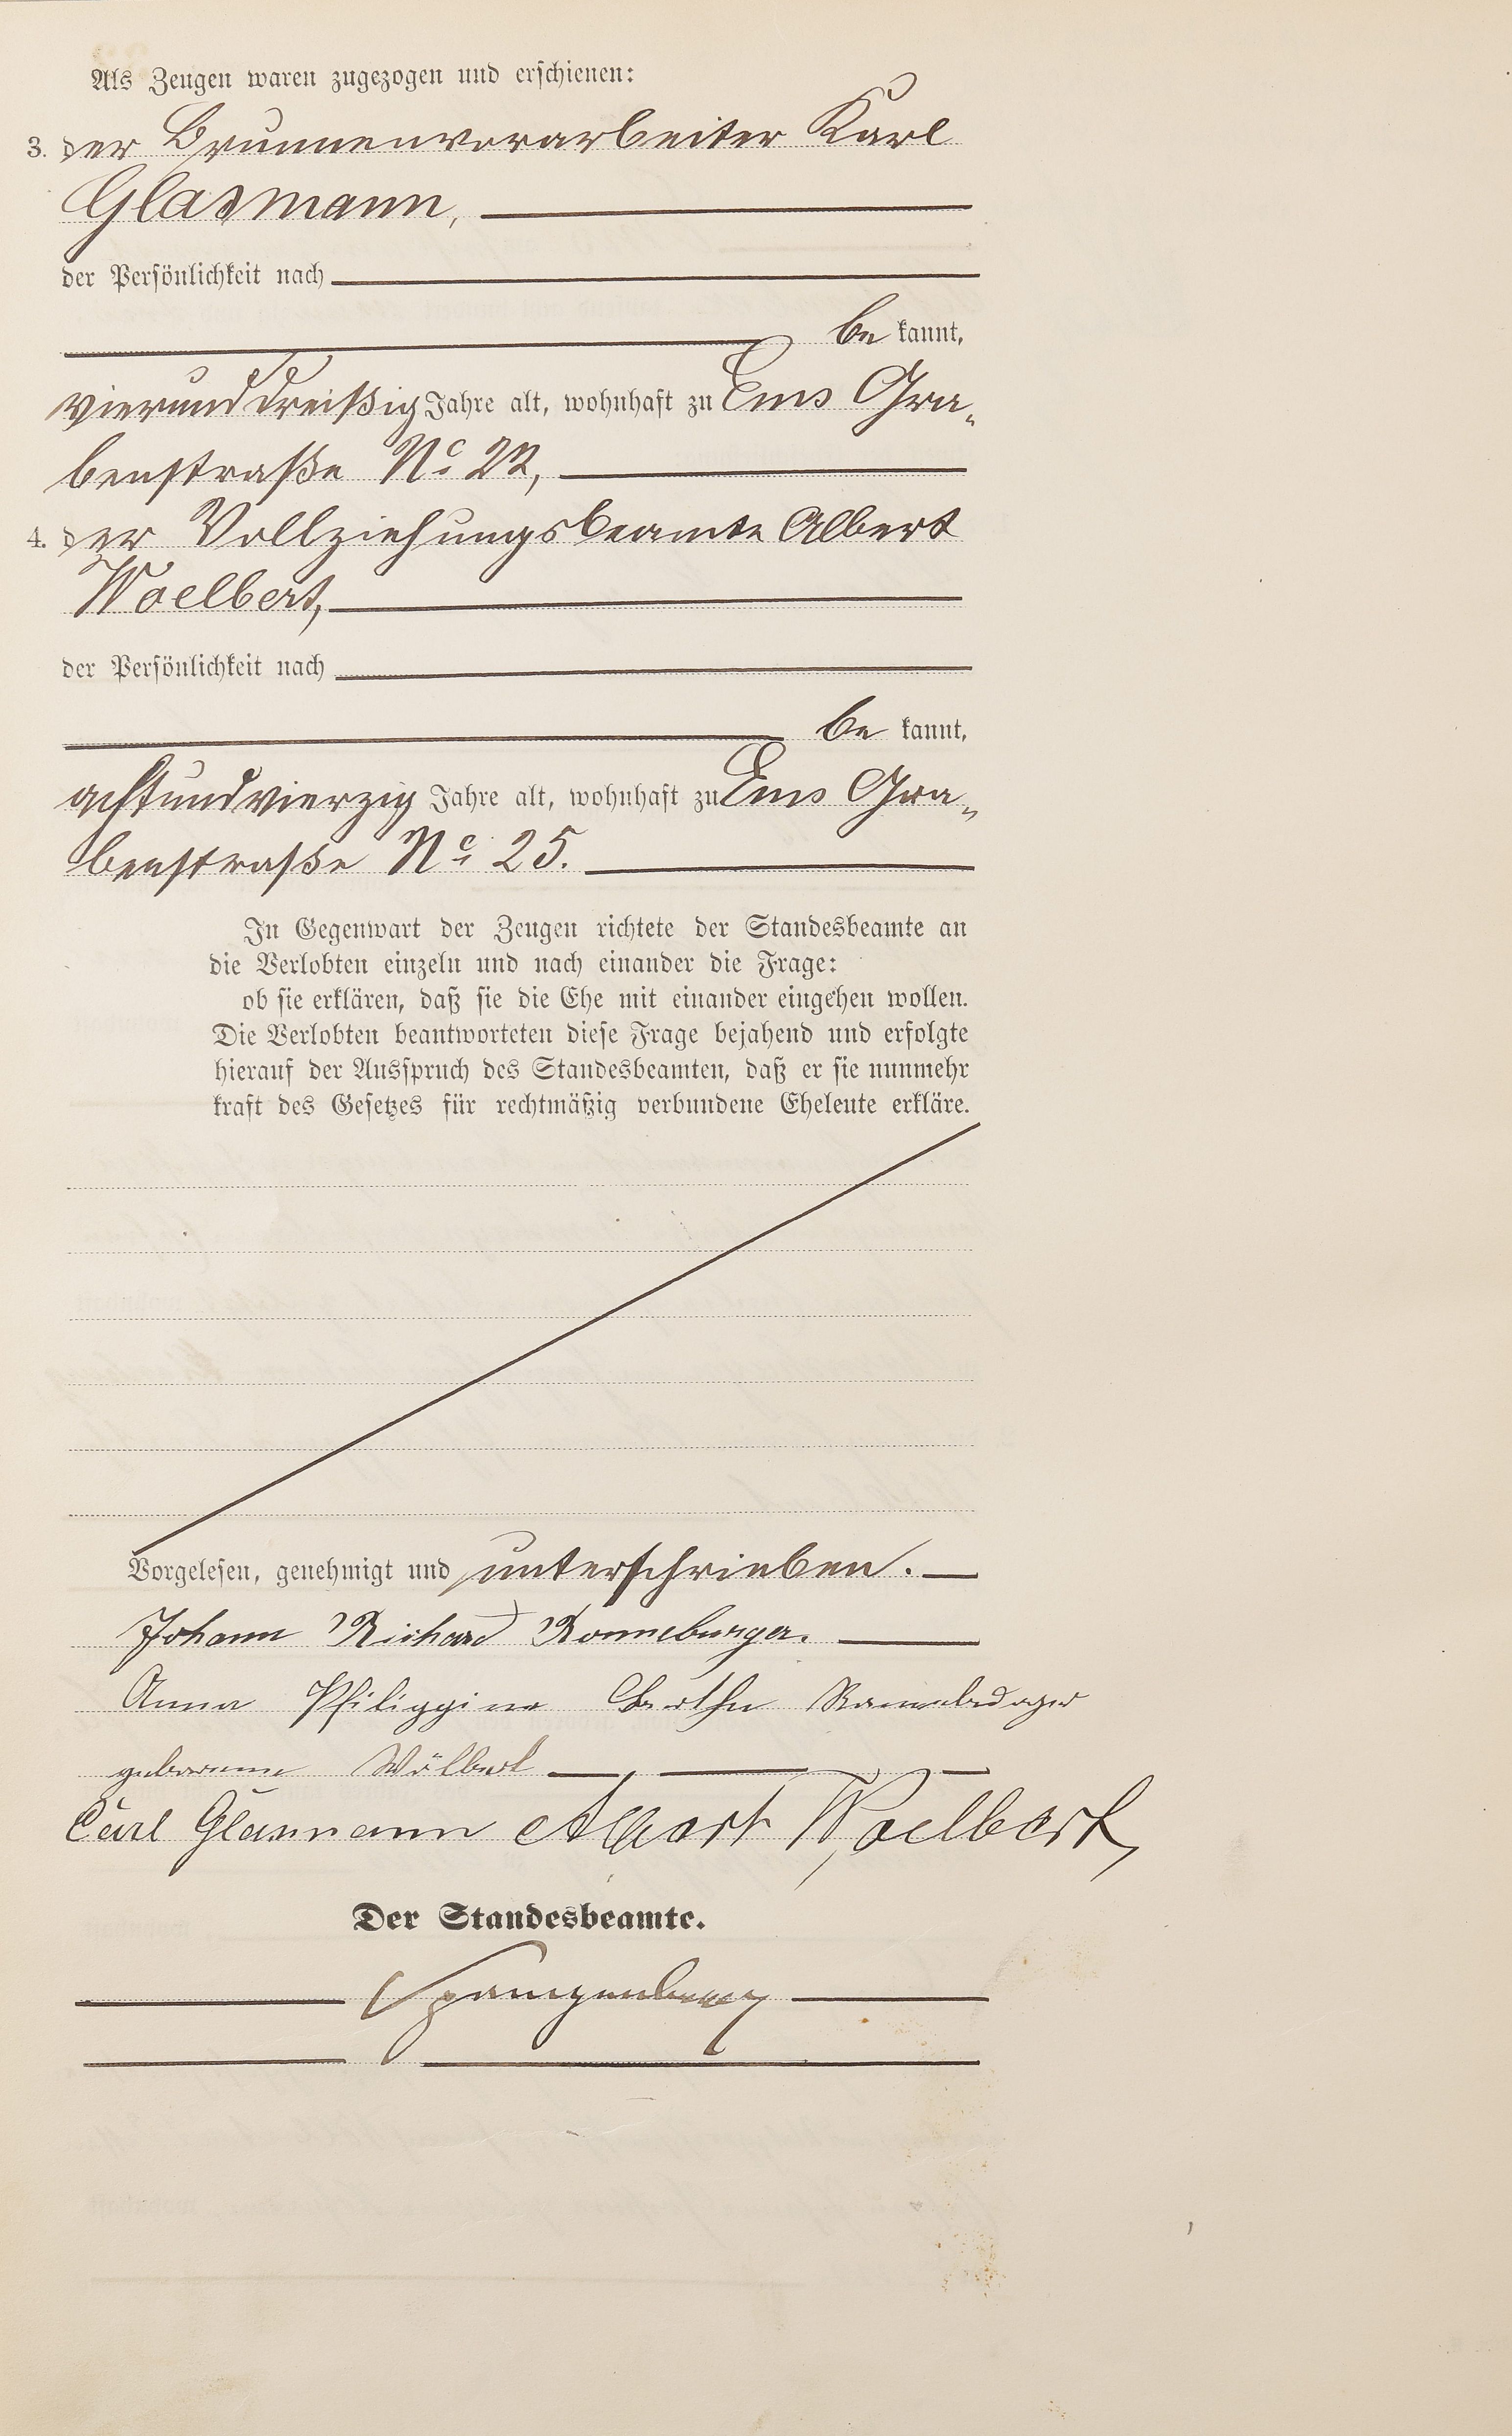 Als Zeugen waren zugezogen und erschienen:
3. der Brunnenvorarbeiter Karl
Glasmann,
der Persönlichkeit nach
be kannt,
vierunddreißig Jahre alt, wohnhaft zu Ems Gra-
benstraße No 22,
4. der Vollziehungsbeamte Albert
Woelbert,
der Persönlichkeit nach
be kannt,
achtundvierzig Jahre alt, wohnhaft zu Ems Gra-
benstraße No 25.
In Gegenwart der Zeugen richtete der Standesbeamte an
die Verlobten einzeln und nach einander die Frage:
ob sie erklären, daß sie die Ehe mit einander eingehen wollen.
Die Verlobten beantworteten diese Frage bejahend und erfolgte
hierauf der Ausspruch des Standesbeamten, daß er sie nunmehr
kraft des Gesetzes für rechtmäßig verbundene Eheleute erkläre.
Vorgelesen, genehmigt und unterschrieben.
Johann Richard Ronneburger.
Anna Philippine Bertha Ronneburger
geborenne Wölbert
Carl Glasmann Albert Woelbert,
Der Standesbeamte.
Spangenberg